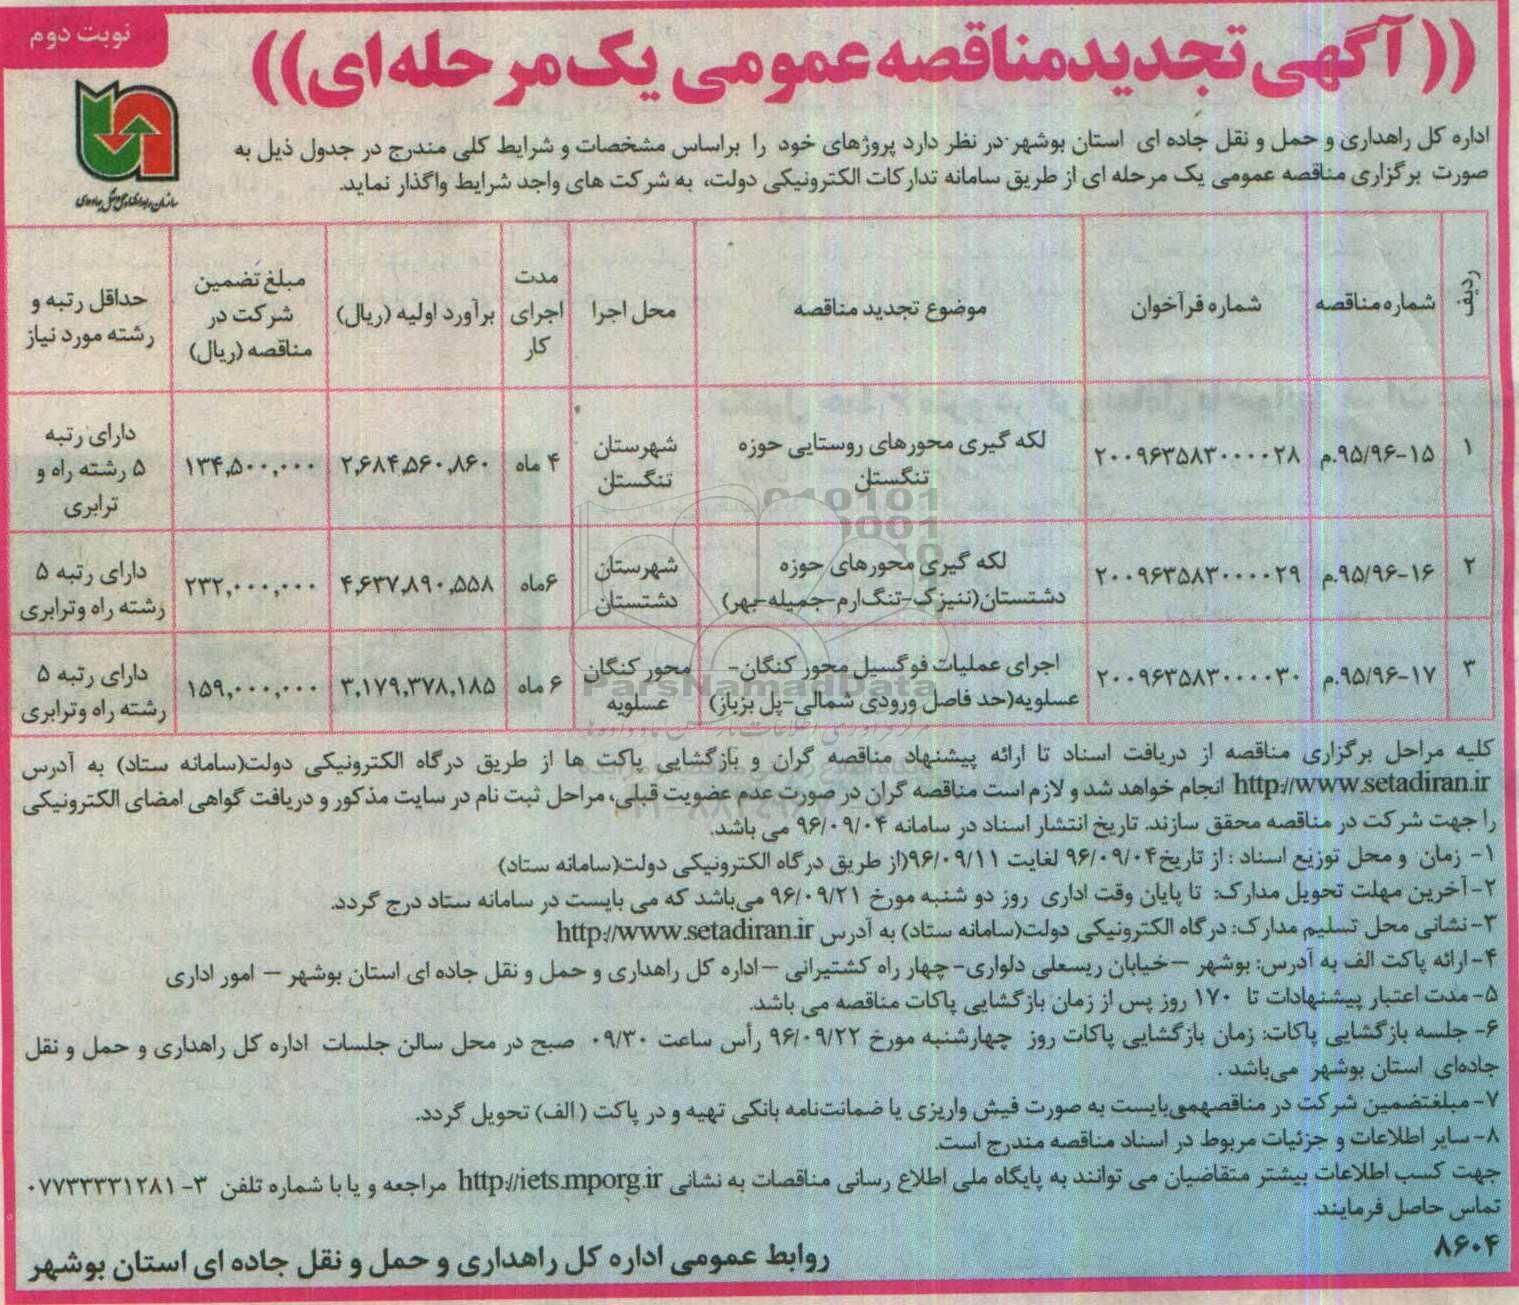 نوبت دوم
((آگهی تجدیدمناقصه عمومی یک مرحله ای))
سازمان راهداری و حمل و نقل جاده‌ای
اداره کل راهداری و حمل و نقل جاده ای استان بوشهر در نظر دارد پروژهای خود را براساس مشخصات و شرایط کلی مندرج در جدول ذیل به
صورت برگزاری مناقصه عمومی یک مرحله ای از طریق سامانه تدارکات الکترونیکی دولت، به شرکت های واجد شرایط واگذار نماید.
ردیف شماره مناقصه شماره فرآخوان موضوع تجدید مناقصه محل اجرا مدت اجرای کار برآورد اولیه (ریال) مبلغ تضمین شرکت در مناقصه (ریال) حداقل رتبه و رشته مورد نیاز
۱ ۹۵/۹۶-۱۵.م ۲۰۰۹۶۳۵۸۳۰۰۰۰۲۸ لکه گیری محورهای روستایی حوزه تنگستان شهرستان تنگستان ۴ ماه ۲,۶۸۴,۵۶۰,۸۶۰ ۱۳۴,۵۰۰,۰۰۰ دارای رتبه ۵ رشته راه و ترابری
۲ ۹۵/۹۶-۱۶.م ۲۰۰۹۶۳۵۸۳۰۰۰۰۲۹ لکه گیری محورهای حوزه دشتستان(ننیزک-تنگ‌ارم-جمیله-بهر) شهرستان دشتستان ۶ماه ۴,۶۳۷,۸۹۰,۵۵۸ ۲۳۲,۰۰۰,۰۰۰ دارای رتبه ۵ رشته راه وترابری
۳ ۹۵/۹۶-۱۷.م ۲۰۰۹۶۳۵۸۳۰۰۰۰۳۰ اجرای عملیات فوگسیل محور کنگان-عسلویه(حد فاصل ورودی شمالی-پل بزباز) محور کنگان عسلویه ۶ ماه ۳,۱۷۹,۳۷۸,۱۸۵ ۱۵۹,۰۰۰,۰۰۰ دارای رتبه ۵ رشته راه وترابری
ParsNamadData
کلیه مراحل برگزاری مناقصه از دریافت اسناد تا ارائه پیشنهاد مناقصه گران و بازگشایی پاکت ها از طریق درگاه الکترونیکی دولت(سامانه ستاد) به آدرس
http://www.setadiran.ir انجام خواهد شد و لازم است مناقصه گران در صورت عدم عضویت قبلی، مراحل ثبت نام در سایت مذکور و دریافت گواهی امضای الکترونیکی
را جهت شرکت در مناقصه محقق سازند. تاریخ انتشار اسناد در سامانه ۹۶/۰۹/۰۴ می باشد.
۱- زمان و محل توزیع اسناد : از تاریخ۹۶/۰۹/۰۴ لغایت ۹۶/۰۹/۱۱(از طریق درگاه الکترونیکی دولت(سامانه ستاد)
۲-آخرین مهلت تحویل مدارک: تا پایان وقت اداری روز دو شنبه مورخ ۹۶/۰۹/۲۱ می‌باشد که می بایست در سامانه ستاد درج گردد.
۳-نشانی محل تسلیم مدارک: درگاه الکترونیکی دولت(سامانه ستاد) به آدرس http://www.setadiran.ir
۴-ارائه پاکت الف به آدرس: بوشهر –خیابان ریسعلی دلواری-چهار راه کشتیرانی –اداره کل راهداری و حمل و نقل جاده ای استان بوشهر – امور اداری
۵-مدت اعتبار پیشنهادات تا ۱۷۰ روز پس از زمان بازگشایی پاکات مناقصه می باشد.
۶- جلسه بازگشایی پاکات: زمان بازگشایی پاکات روز چهارشنبه مورخ ۹۶/۰۹/۲۲ رأس ساعت ۰۹/۳۰ صبح در محل سالن جلسات اداره کل راهداری و حمل و نقل
جاده‌ای استان بوشهر می‌باشد .
۷-مبلغتضمین شرکت در مناقصهمی‌بایست به صورت فیش واریزی یا ضمانت‌نامه بانکی تهیه و در پاکت (الف) تحویل گردد.
۸-سایر اطلاعات و جزئیات مربوط در اسناد مناقصه مندرج است.
جهت کسب اطلاعات بیشتر متقاضیان می توانند به پایگاه ملی اطلاع رسانی مناقصات به نشانی http://iets.mporg.ir مراجعه و یا با شماره تلفن ۳-۰۷۷۳۳۳۳۱۲۸۱
تماس حاصل فرمایند.
۸۶۰۴
روابط عمومی اداره کل راهداری و حمل و نقل جاده ای استان بوشهر